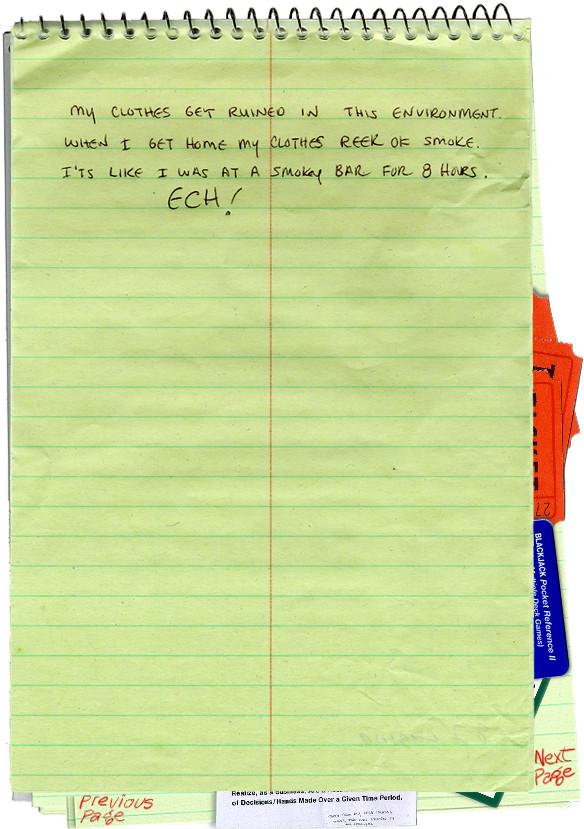 MY CLOTHES GET RUINED IN THIS ENVIRONMENT.
WHEN I GET HOME MY CLOTHES REEK OF SMOKE.
I'TS LIKE I WAS AT A SMOKEY BAR FOR 8 HOURS.
ECH!
TICKET
27
BLACKJACK Pocket Reference II
Multiple Deck Games)
Next
Page
Previous
Page
Realize, as a Business,
of Decisions/Hands Made Over a Given Time Period.